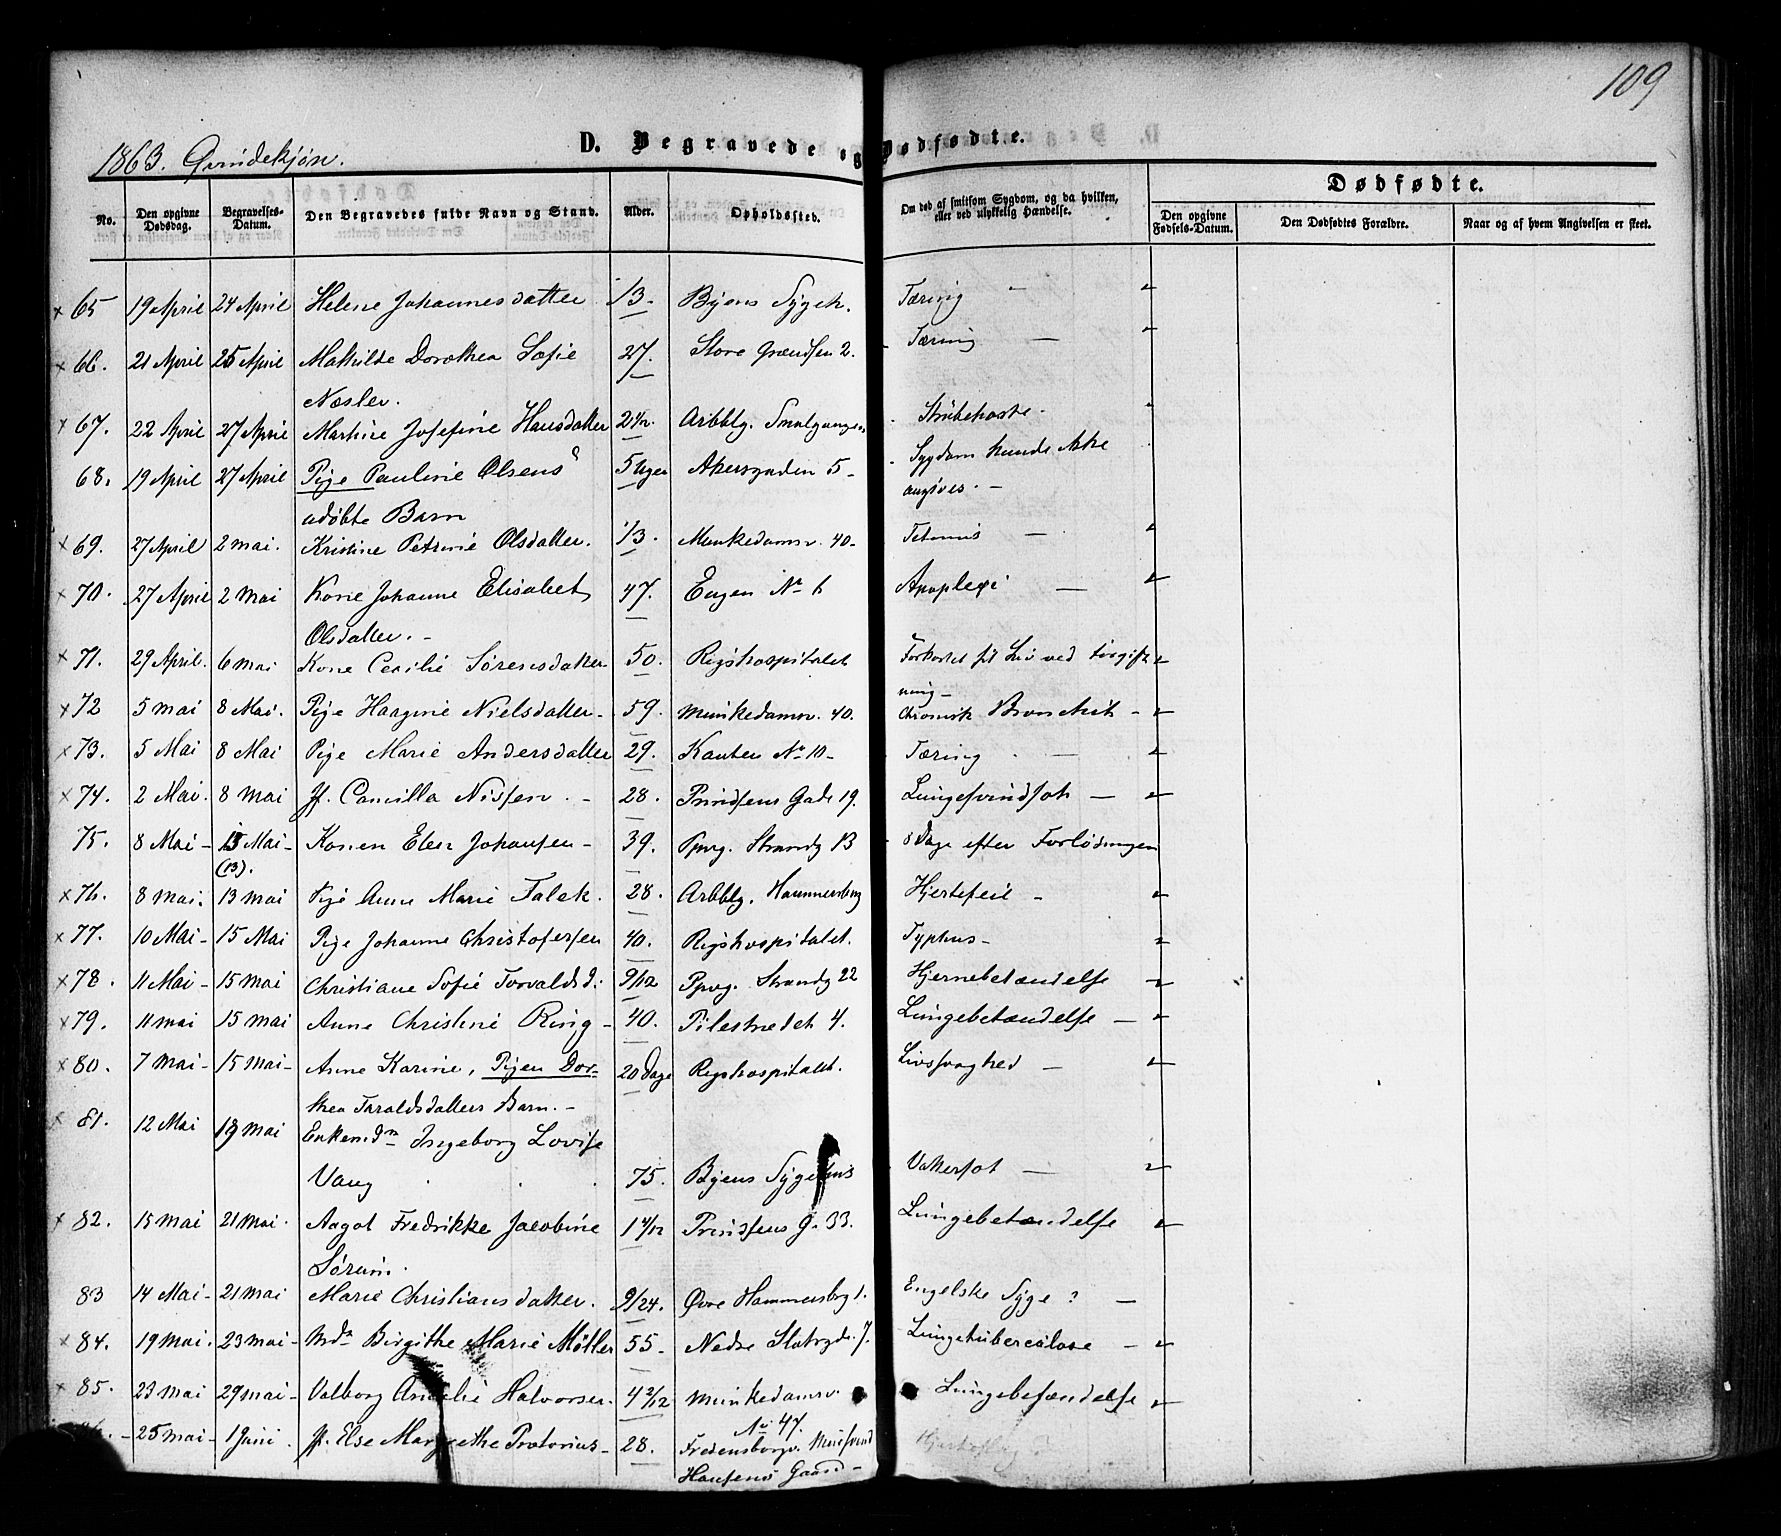 109
1863. Qvindekjøn.
D. Begravede og Dødfødte.
No. Den opgivne Dødsdag. Begravelses-Datum. Den Begravedes fulde Navn og Stand. Alder. Opholdssted. Om død af smitsom Sygdom, og da hvilken, eller ved ulykkelig Hændelse. Dødfødte.
Den opgivne Fødsels-Datum. Den Dødfødtes Forældre. Naar og af hvem Angivelsen er skeet.
65 19 April 24 April Helene Johannesdatter 1/3 - Byens Sygeh. Tæring -
66. 21 April 25 April Mathilde Dorothea Sofie 27. Store Grændsen 2. Tæring -
Næsler.
67. 22 April 27 April Marthine Josefine Hansdatter 2 1/12. Arbblg. Smalgangen Strubehoste.
68. 19 April 27 April Pige Pauline Olsens 5 Uger Akersgaden 5 - Sygdom kunde ikke
udøbte Barn angives. -
69. 27 April 2 Mai. Kristine Petrine Olsdatter. 1/3. Munkedamsv. 40 - Tetanus -
70. 27 April 2 Mai Kone Johanne Elisabet 47. Engen No 6 Apoplexi -
Olsdatter. -
71. 29 April. 6 Mai Kone Cecilie Sørensdatter 50. Rigshospitalet Forkortet sit Liv ved Forgift
ning -
72 5 Mai 8 Mai. Pige Haagine Nielsdatter - 59. Munkedamsv. 40. Chronisk Bronchit -
73. 5 Mai 8 Mai Pige Marie Andersdatter 29. Kanten No 10 - Tæring -
74. 2 Mai. 8 Mai Jf. Camilla Nissen - 28. Prindsens Gade 19. Lungesvindsot -
75. 8 Mai - 15 Mai - Karen Elen Johansen - 39. Ppvg. Strandg 13 8 Dage efter Forløsningen
(13).
76. 8 Mai. 13 Mai Pige Anne Marie Falck. 28. Arbblg. Hammersborg Hjertefeil -
77. 10 Mai - 15 Mai Pige Johanne Christofersen 40. Rigshospitalet. Typhus -
78. 11 Mai - 15 Mai Christiane Sofie Torvaldsd: 9/12 Ppvg. Strandg 22 Hjernebetændelse -
79. 11 Mai 15 Mai Anne Christine Ring - 40. Pilestredet 4. Lungebetændelse -
80. 7 Mai - 15 Mai - Anne Karine, Pigen Dor- 20 Dage Rigshospitalet. Livssvaghed -
thea Taraldsdatters Barn. -
81. 12 Mai 19 Mai Enkemdm Ingeborg Lovise
Vang 75. Byens Sygehus Vattersot -
82. 15 Mai 21 Mai. Aagot Fredrikke Jacobine 1 4/12 Prindsens G. 33. Lungebetændelse
Sørum.
83 14 Mai - 21 Mai Marie Christiansdatter. 9/24. Øvre Hammersborg 1. Engelske Syge? -
84. 19 Mai. 23 Mai - Mdm Birgithe Marie Møller 55 - Nedre Slotsgd. 7. Lungetuberculose -
85. 23 Mai 29 Mai - Valborg Amalie Halvorsen. 4 2/12 Munkedamsv. Lungebetændelse
No 47.
86. - 25 Mai - 1 Juni. Jf. Else Margrethe Prætorius - 28. Fredensborgv. Hjerteslag?
Hansens Gaard -